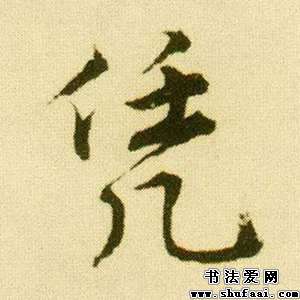 凭
书法爱网
www.shufaai.com